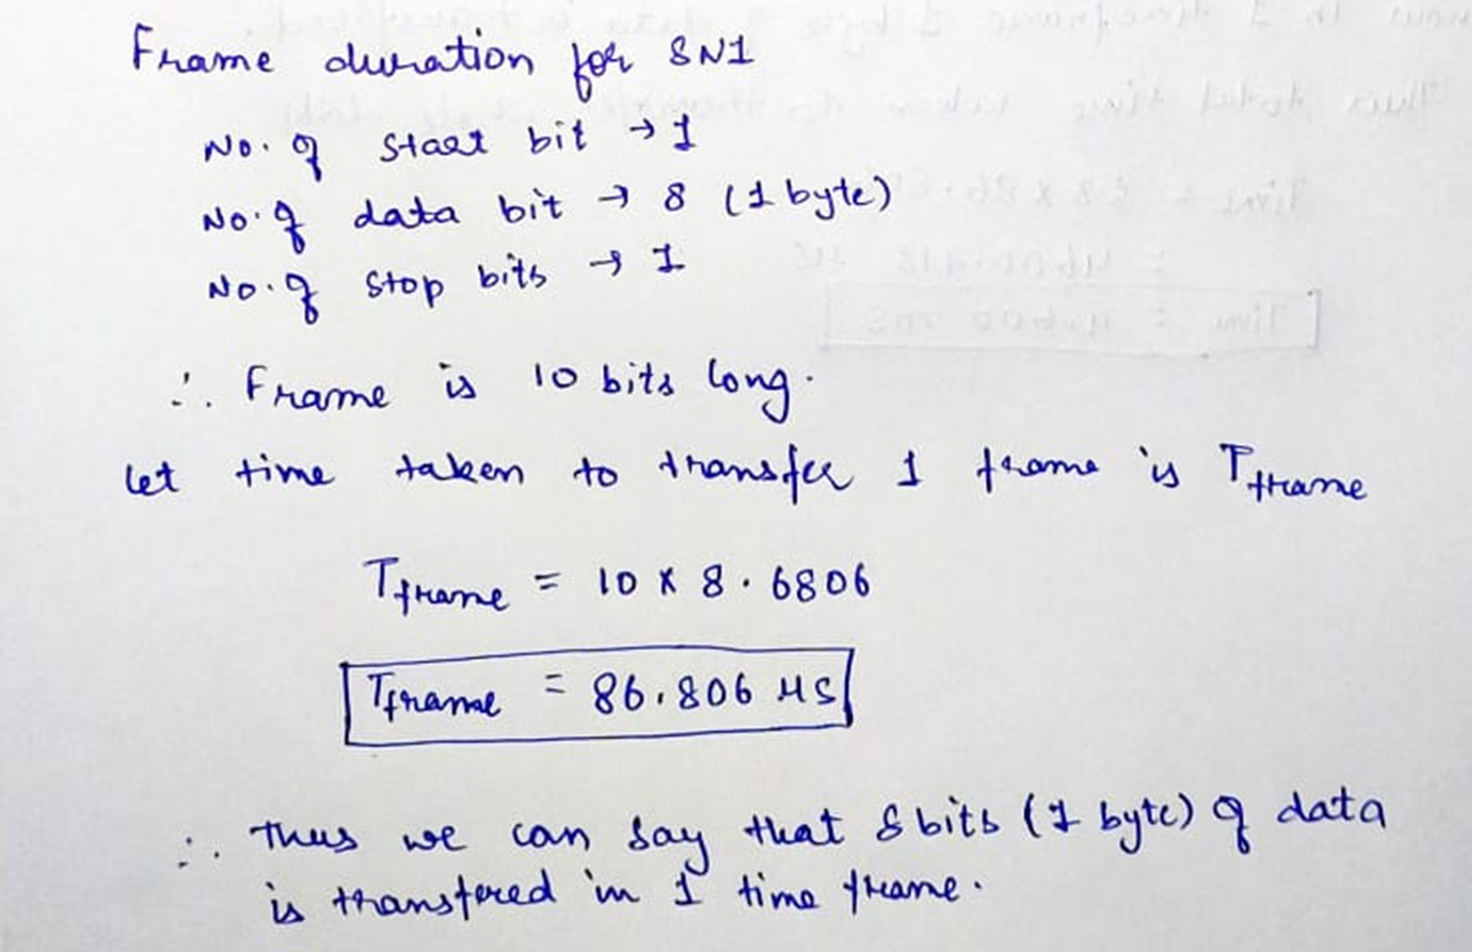 Frame duration for 8N1
No. of start bit → 1
No. of data bit → 8 (1 byte)
No. of stop bits → 1
∴ Frame is 10 bits long.
Let time taken to transfer 1 frame is Tframe
Tframe = 10 x 8.6806
Tframe = 86.806 μs
∴ Thus we can say that 8 bits (1 byte) of data
is transfered in 1 time frame.